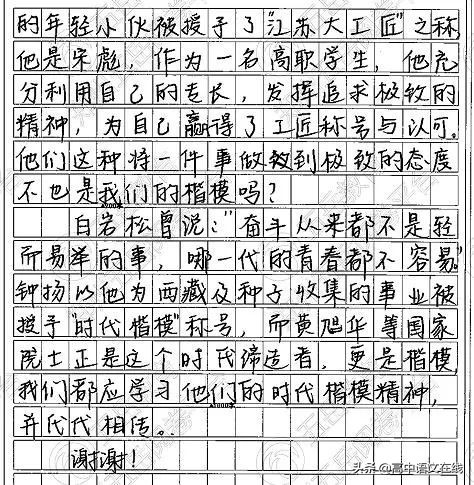 的年轻小伙被授予了"江苏大工匠"之称,
他是宋彪,作为一名高职学生,他充
分利用自己的专长,发挥追求极致的
精神,为自己赢得了工匠称号与认可。
他们这种将一件事做到极致的态度
不也是我们的楷模吗?
白岩松曾说:"奋斗从来都不是轻
而易举的事,哪一代的青春都不容易。"
钟扬以他为西藏及种子收集的事业被
授予"时代楷模"称号,而黄旭华等国家
院士正是这个时代缔造者,更是楷模,
我们都应学习他们的时代楷模精神,
并代代相传。
谢谢!
头条@高中语文在线